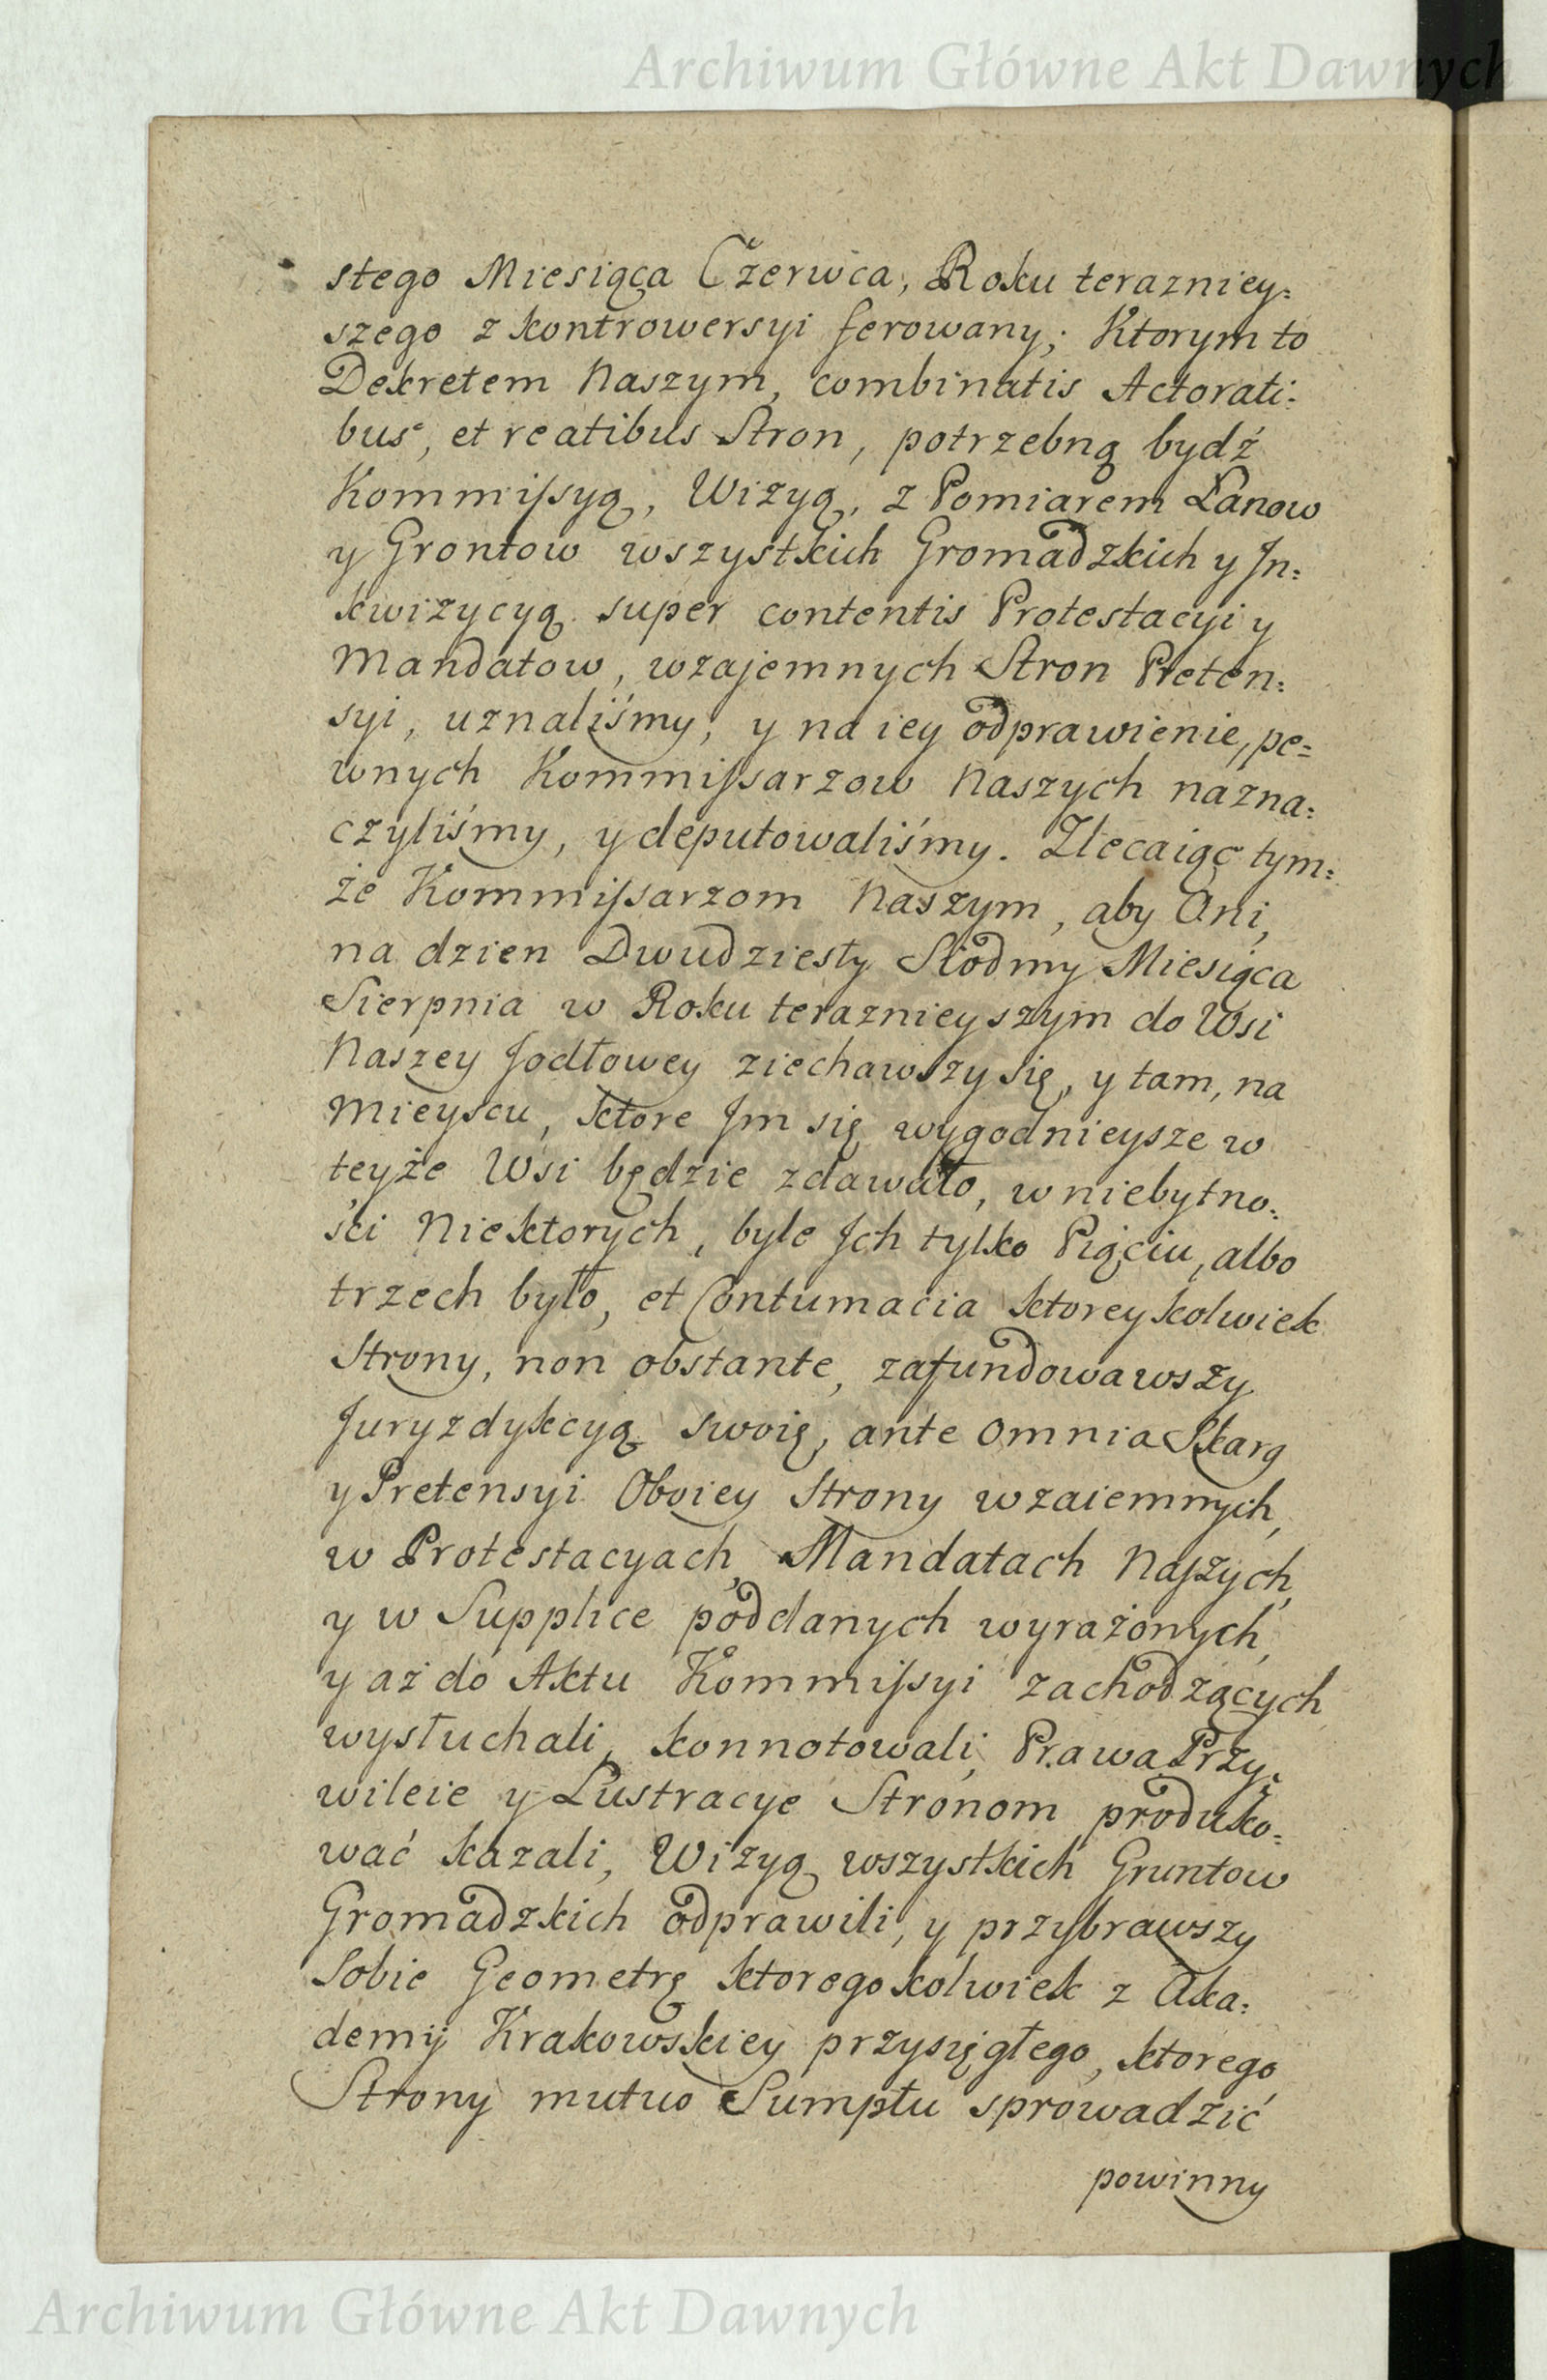 Archiwum Główne Akt Dawnych
stego Miesiąca Czerwca, Roku terazniey:
szego z kontrowersyi ferowany; Ktorym to
Dekretem Naszym, combinatis Actorati:
bus, et reatibus Stron, potrzebną bydź
Kommiſsyą, Wizyą, z Pomiarem Łanow
y Grontow wszystkich Gromadzkich y In:
kwizycyą super contentis Protestacyi y
Mandatow, wzajemnych Stron Preten:
syi, uznaliśmy, y na iey odprawienie, pe=
wnych Kommiſsarzow Naszych nazna:
czyliśmy, y deputowaliśmy. Zlecaiąc tym:
że Kommiſsarzom Naszym, aby Oni,
na dzien Dwudziesty Siodmy Miesiąca
Sierpnia w Roku teraznieyszym do Wsi
Naszey Jodłowey ziechawszy się, y tam, na
Mieyscu, ktore Jm się wygodnieysze w
teyże Wsi będzie zdawało, w niebytno:
ści Niektorych, byle Jch tylko Piąciu, albo
trzech było, et Contumacia ktoreykolwiek
Strony, non obstante, zafundowawszy
Juryzdykcyą swoię, ante omnia Skarg
y Pretensyi Oboiey Strony wzaiemnych,
w Protestacyach, Mandatach Naſzych,
y w Supplice poddanych wyrażonych,
y aż do Aktu Kommiſsyi zachodzących
wysłuchali, konnotowali, Prawa Przy:
wileie y Lustracye Stronom produko:
wać kazali, Wizyą wszystkich Gruntow
Gromadzkich odprawili, y przybrawszy
Sobie Geometrę ktoregokolwiek z Aka:
demij Krakowskiey przysięgłego, ktorego
Strony mutuo Sumptu sprowadzić
powinny
Archiwum Główne Akt Dawnych